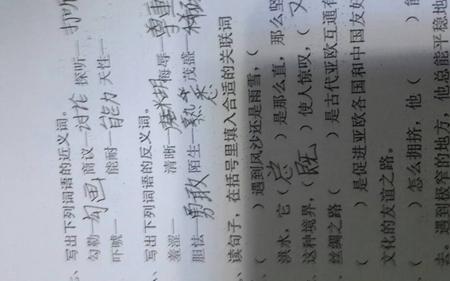 、写出下列词语的近义词。
勾勒—勾画 商议—讨论 探听—打听
吓唬— 能耐—能力 天性—
、写出下列词语的反义词。
羞涩— 清晰—模糊 侮辱—尊重
胆怯—勇敢 陌生—熟悉 茂盛—稀疏
、读句子，在括号里填入合适的关联词
（ ）遇到风沙还是雨雪，（
洪水，它（总）是那么直，那么坚
这种境界，（既）使人惊叹，（又
丝绸之路（ ）是古代亚欧互通有
（ ）是促进亚欧各国和中国友好
文化的友谊之路。
（ ）怎么拥挤，他（ ）能
去。遇到极窄的地方，他总能平稳地